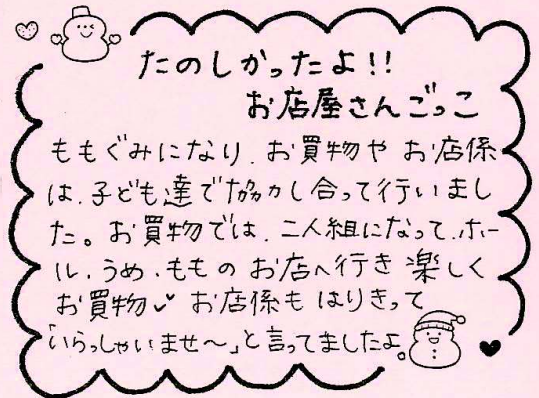 たのしかったよ!!
お店屋さんごっこ
ももぐみになり、お買物や お店係
は、子ども達で協力し合って行いまし
た。お買物では、二人組になって、ホー
ル、うめ、ももの お店へ行き 楽しく
お買物✓ お店係も はりきって
「いらっしゃいませ〜」と言ってましたよ。